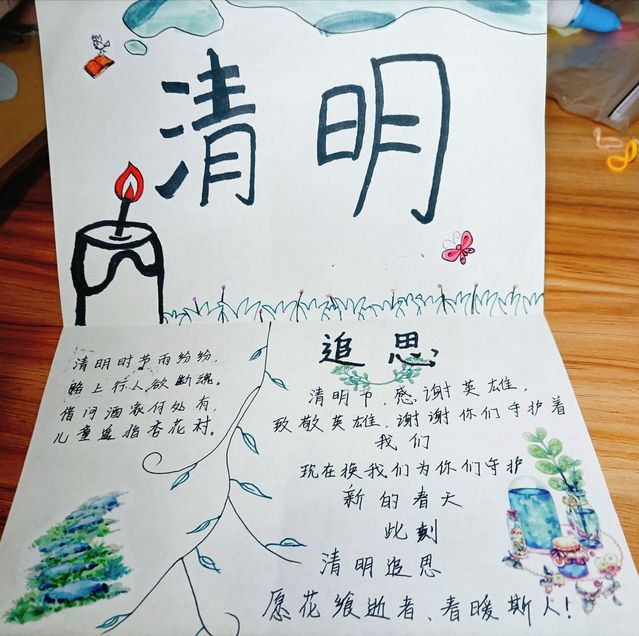 清明
清明时节雨纷纷,
路上行人欲断魂。
借问酒家何处有,
儿童遥指杏花村。
追思
清明节、感谢英雄,
致敬英雄,谢谢你们守护着
我们
现在换我们为你们守护
新的春天
此刻
清明追思
愿花飨逝者、春暖斯人!